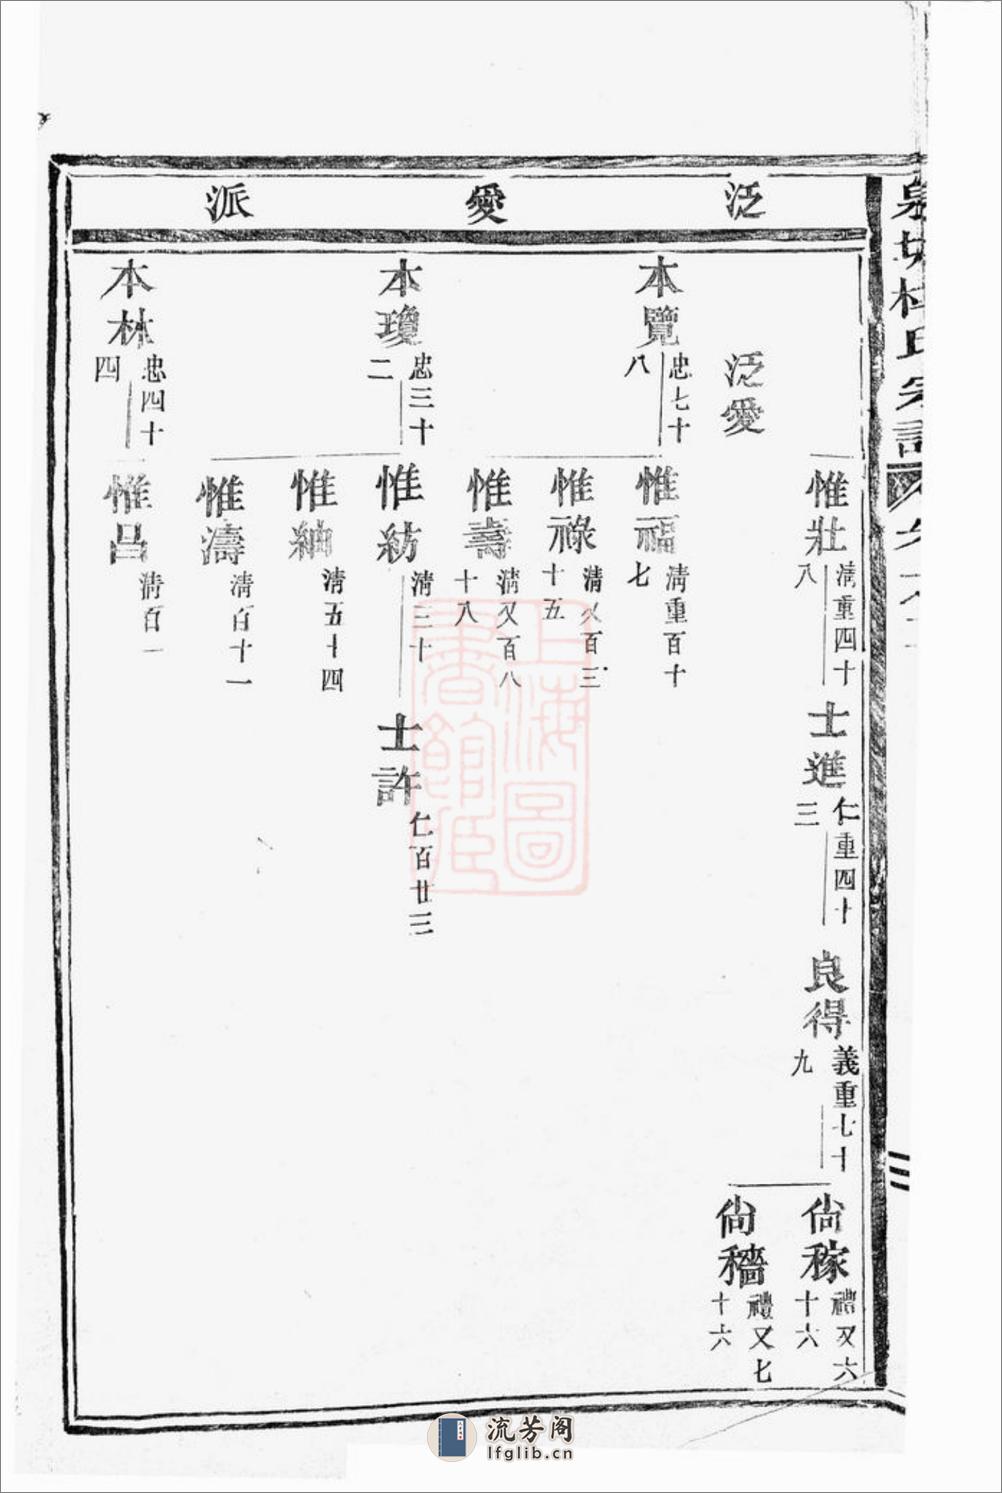 泛愛派
惟壯 清重四十八
士進 仁重四十三
良得 義重七十九
尙稼 禮又六十六
尙穡 禮又七十六
泛愛
本覽 忠七十八
惟福 清重百十七
惟祿 清又百三十五
惟壽 清又百八十八
本瓊 忠三十二
惟紡 清三十
士許 仁百廿三
惟紬 清五十四
惟濤 清百十一
本林 忠四十四
惟昌 清百一
上海圖書館藏
流芳阁
lfglib.cn